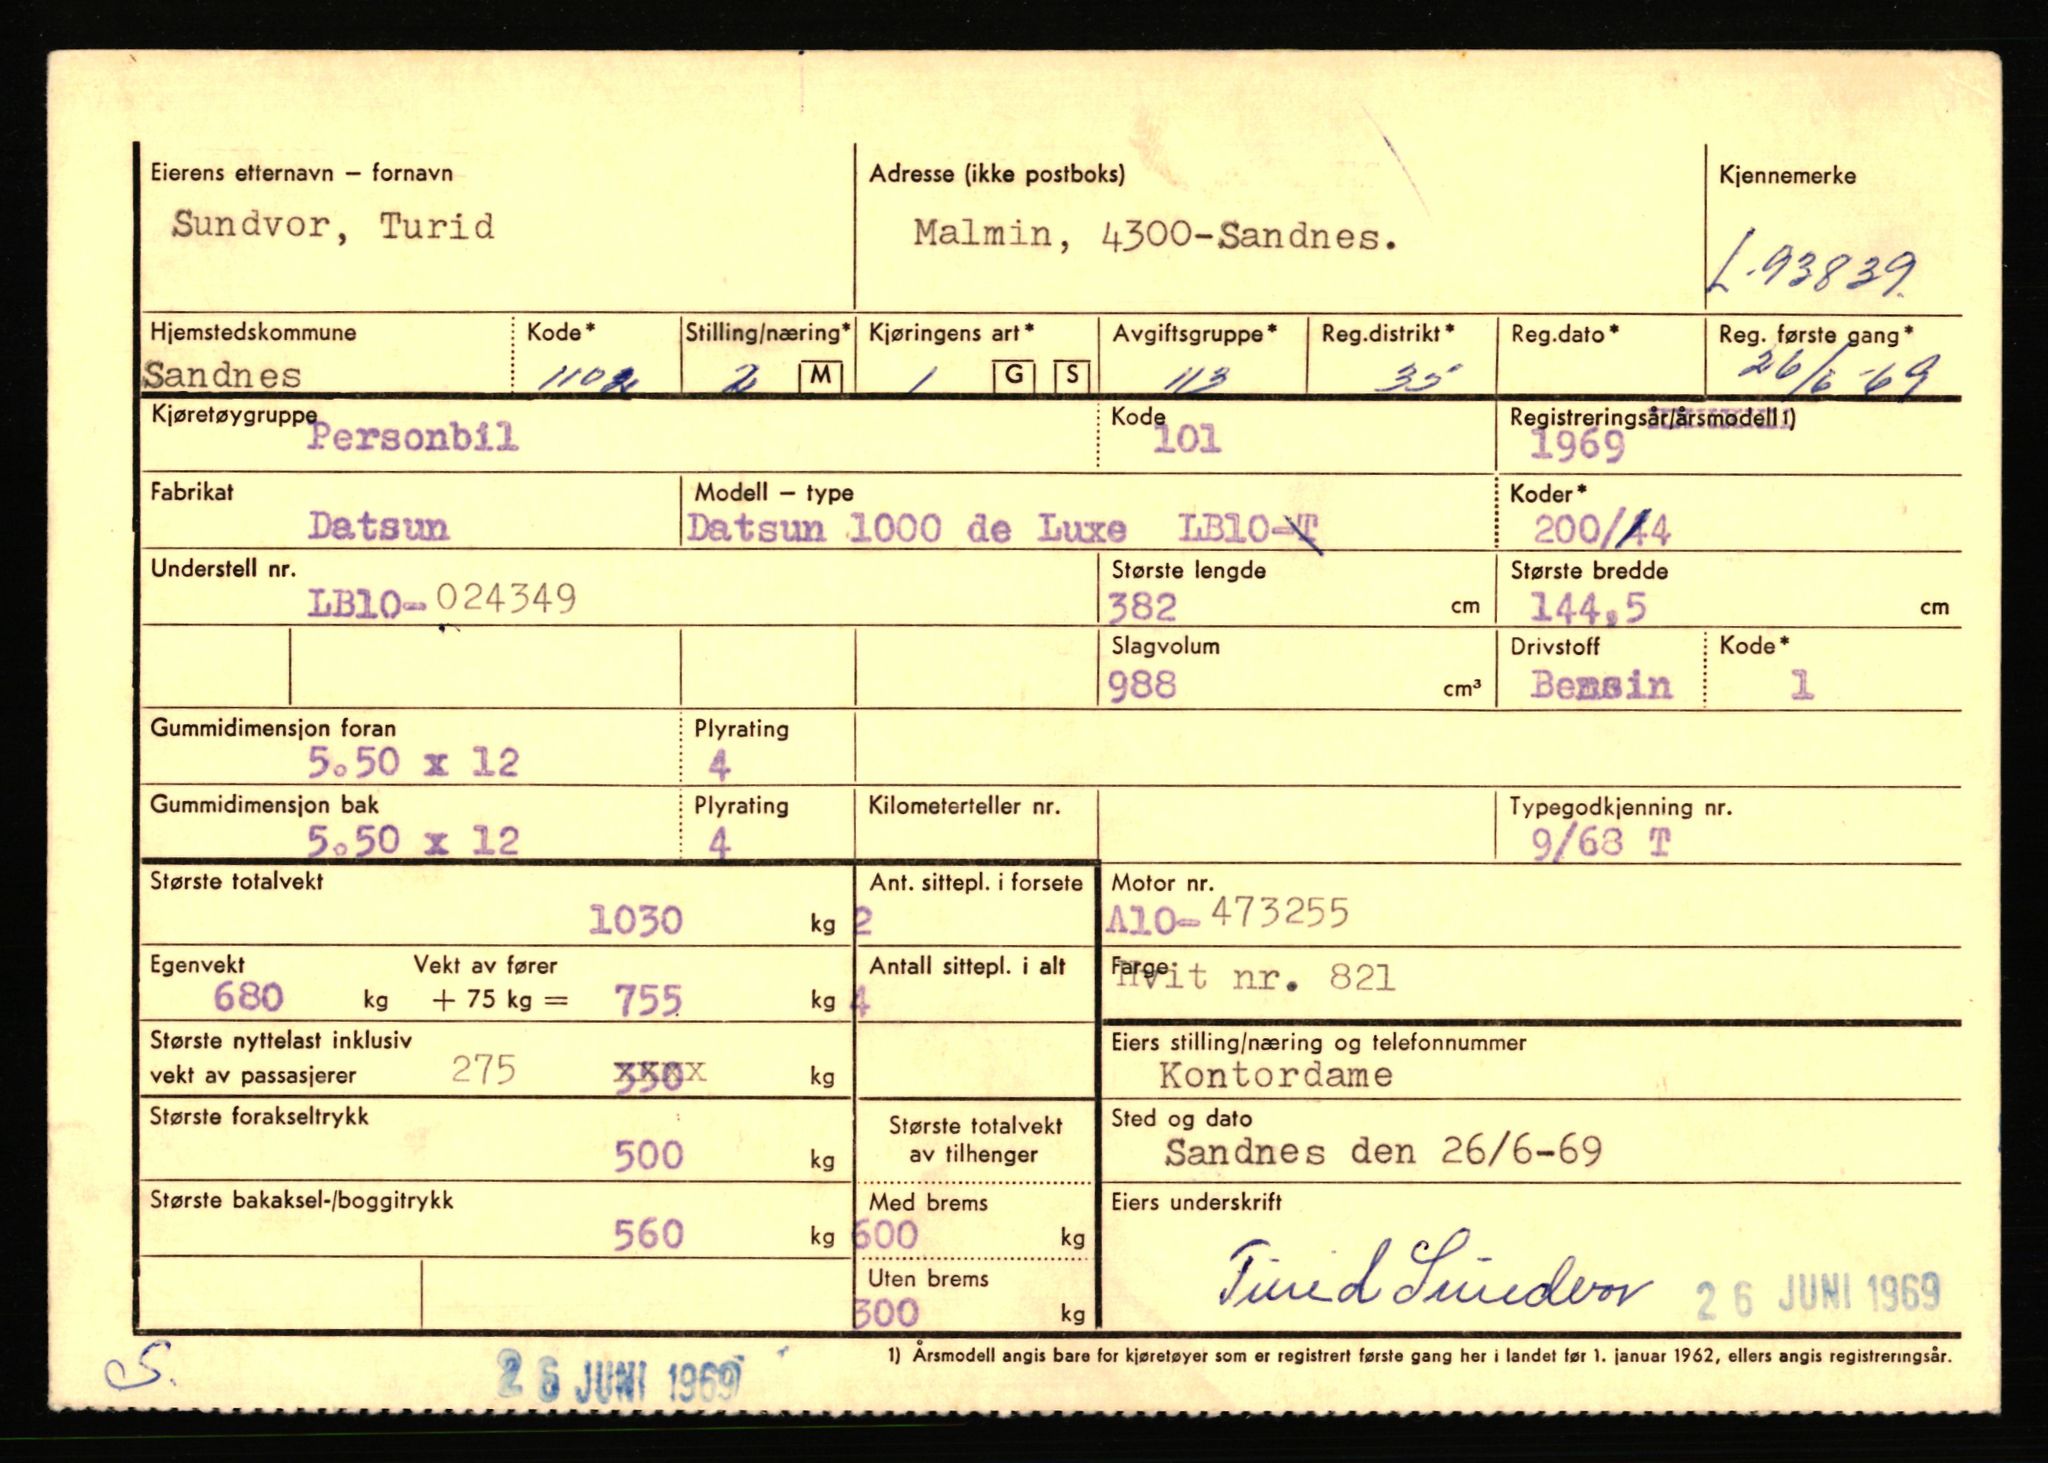 Eierens etternavn – fornavn
Sundvor, Turid
Adresse (ikke postboks)
Malmin, 4300-Sandnes.
Kjennemerke
L-93839.
Hjemstedskommune
Sandnes
Kode*
1102
Stilling/næring*
2 M
Kjøringens art*
1 G S
Avgiftsgruppe*
113
Reg.distrikt*
35
Reg.dato*
Reg. første gang*
26/6-69
Kjøretøygruppe
Personbil
Kode
101
Registreringsår/årsmodell 1)
1969
Fabrikat
Datsun
Modell – type
Datsun 1000 de Luxe LB10-T
Koder*
200/44
Understell nr.
LB10-024349
Største lengde
382 cm
Største bredde
144,5 cm
Slagvolum
988 cm³
Drivstoff
Bensin
Kode*
1
Gummidimensjon foran
5.50 x 12
Plyrating
4
Gummidimensjon bak
5.50 x 12
Plyrating
4
Kilometerteller nr.
Typegodkjenning nr.
9/68 T
Største totalvekt
1030 kg
Ant. sittepl. i forsete
2
Motor nr.
A10-473255
Egenvekt
680 kg
Vekt av fører
+ 75 kg = 755 kg
Antall sittepl. i alt
4
Farge
Hvit nr. 821
Største nyttelast inklusiv
vekt av passasjerer 275 350 kg
Eiers stilling/næring og telefonnummer
Kontordame
Største forakseltrykk
500 kg
Største totalvekt
av tilhenger
Sted og dato
Sandnes den 26/6-69
Største bakaksel-/boggitrykk
560 kg
Med brems
600 kg
Uten brems
300 kg
Eiers underskrift
Turid Sundvor
26 JUNI 1969
S.
26 JUNI 1969
1) Årsmodell angis bare for kjøretøyer som er registrert første gang her i landet før 1. januar 1962, ellers angis registreringsår.